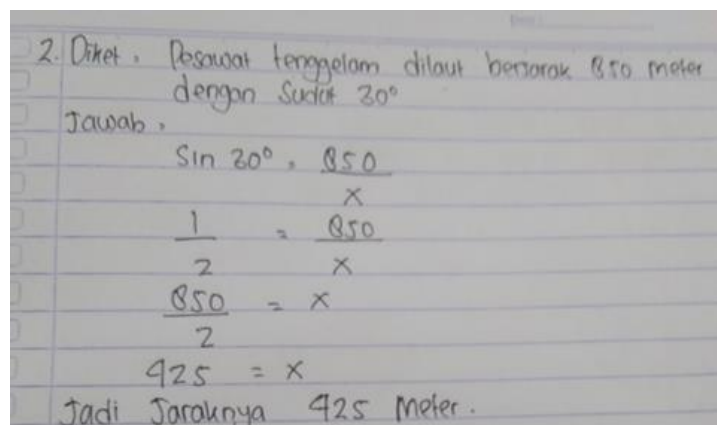 2. Diket : Pesawat tenggelam dilaut berjarak 850 meter
dengan Sudut 30°
Jawab :
Sin 30° = 850
x
1 = 850
2 x
850 = x
2
425 = x
Jadi Jaraknya 425 Meter.